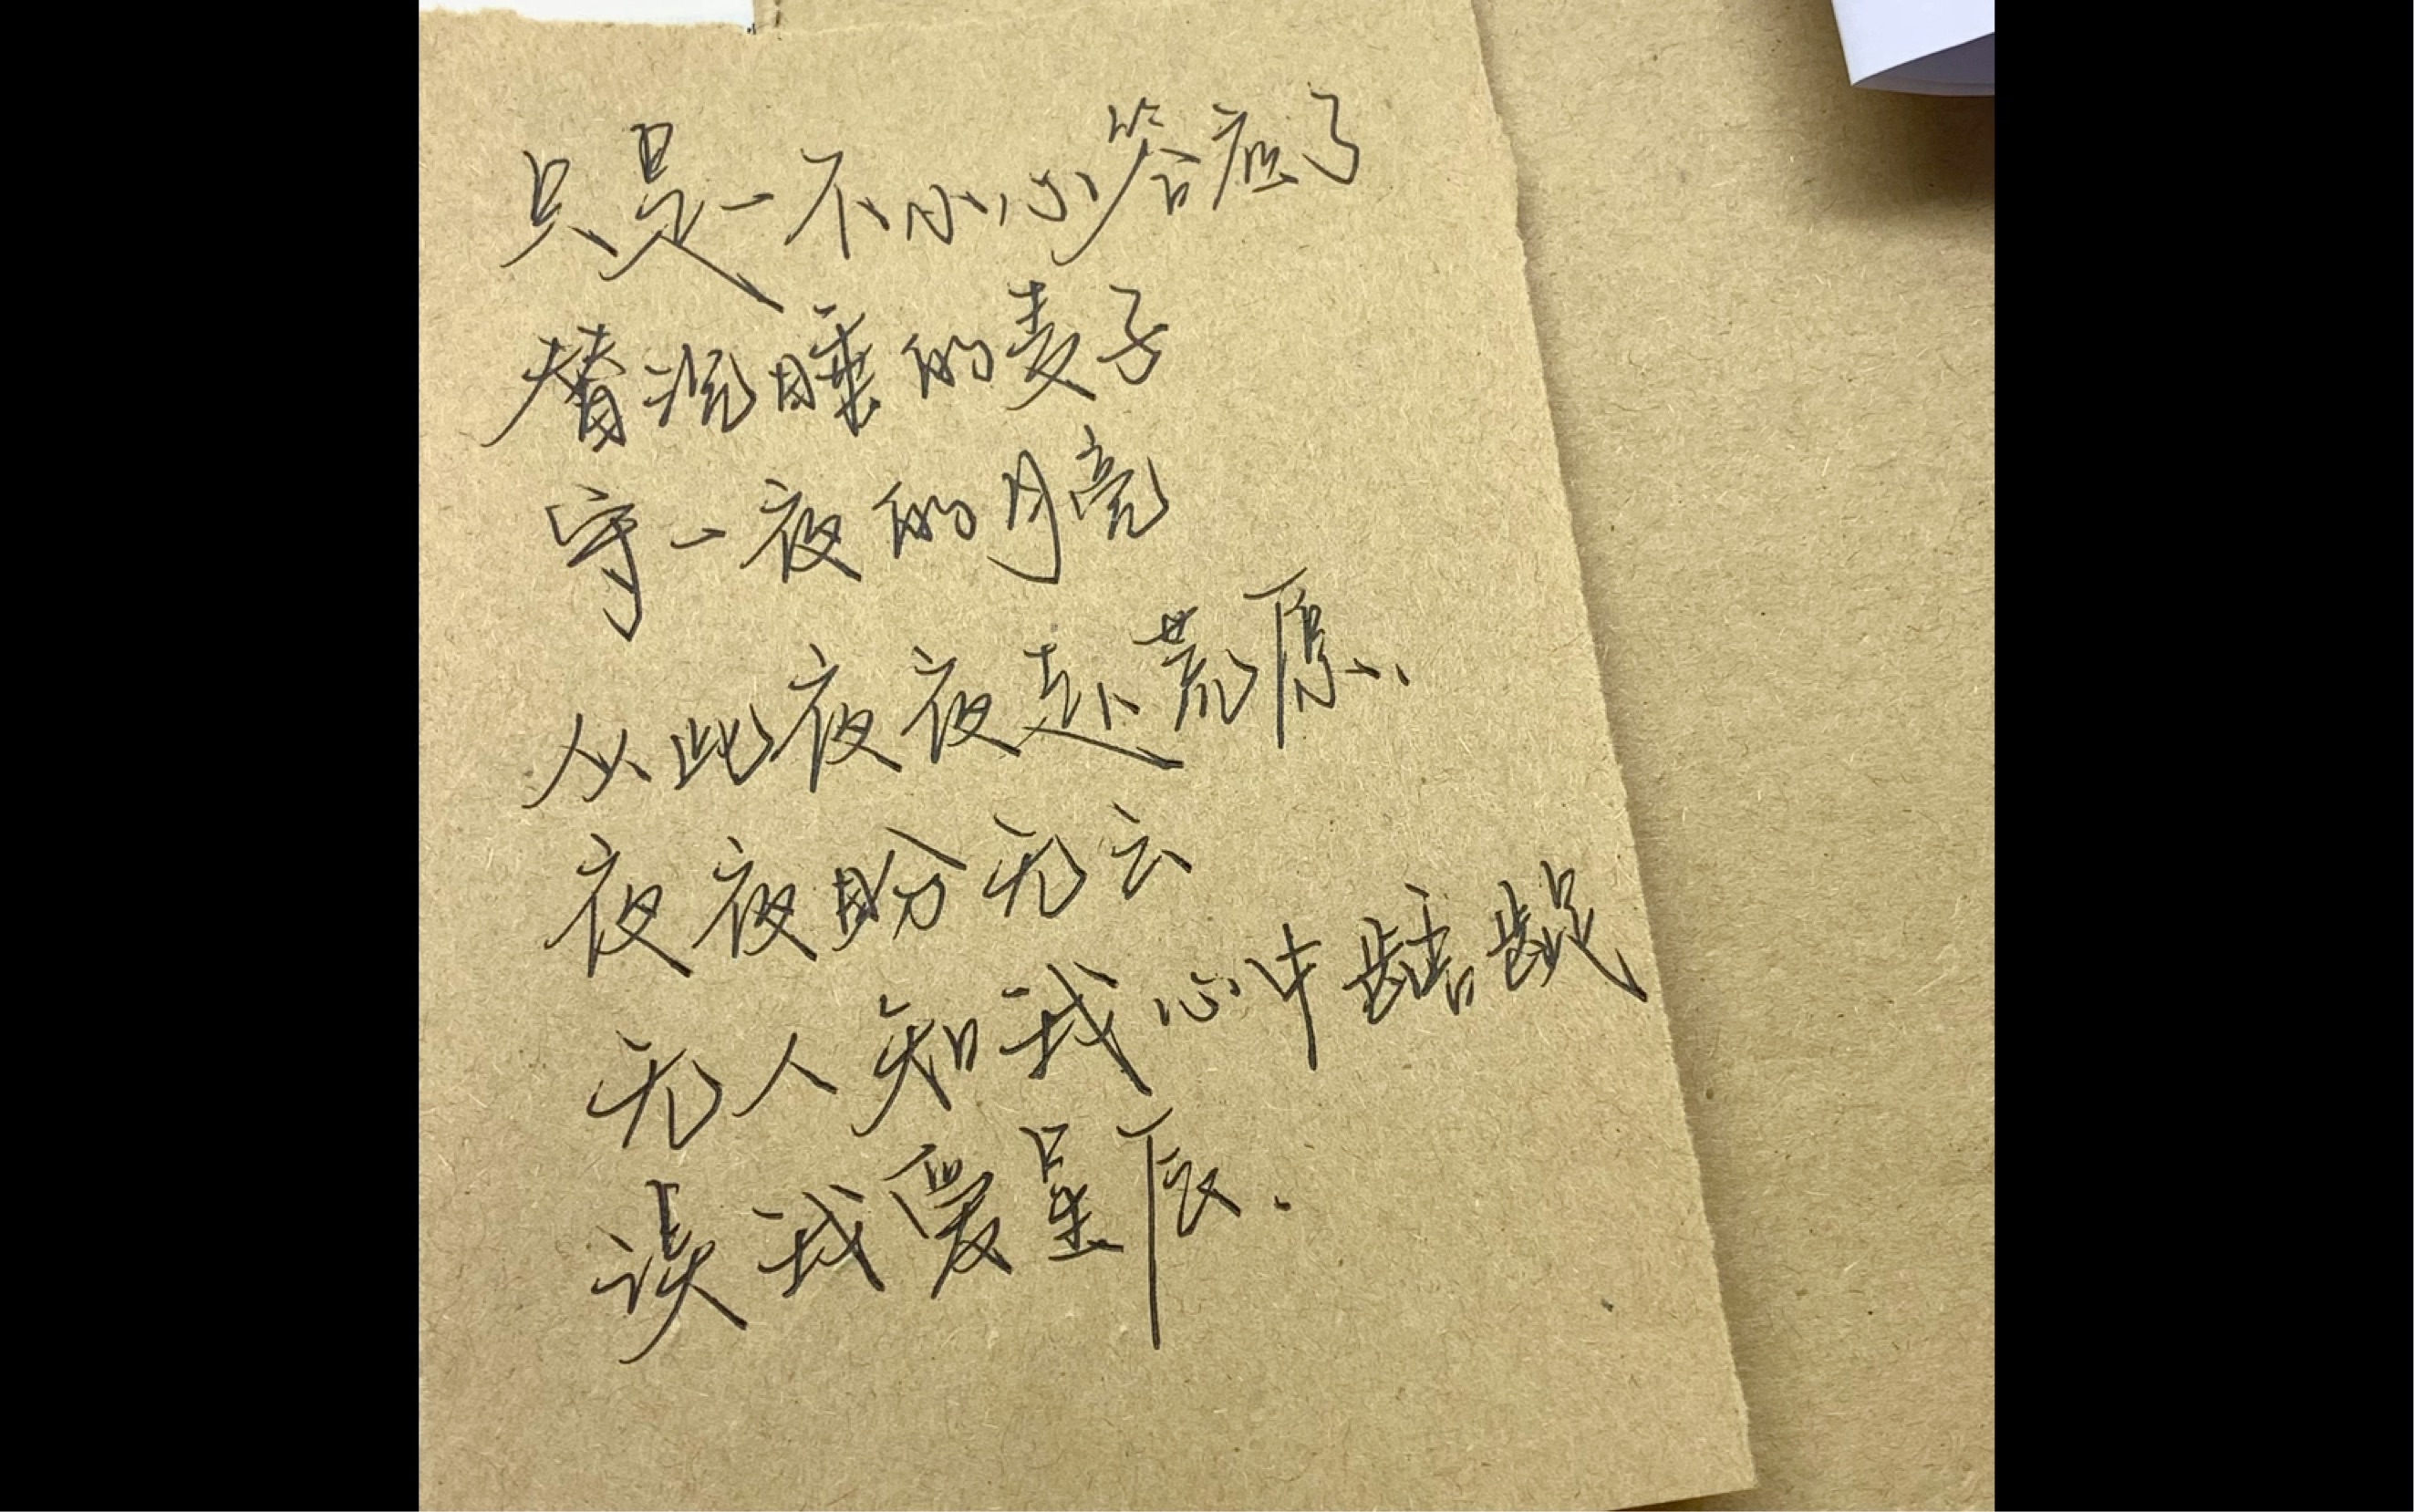 只是一不小心答应了
替沉睡的麦子
守一夜的月亮
从此夜夜赴荒原、
夜夜盼无云
无人知我心中龉龊
误我爱星辰.